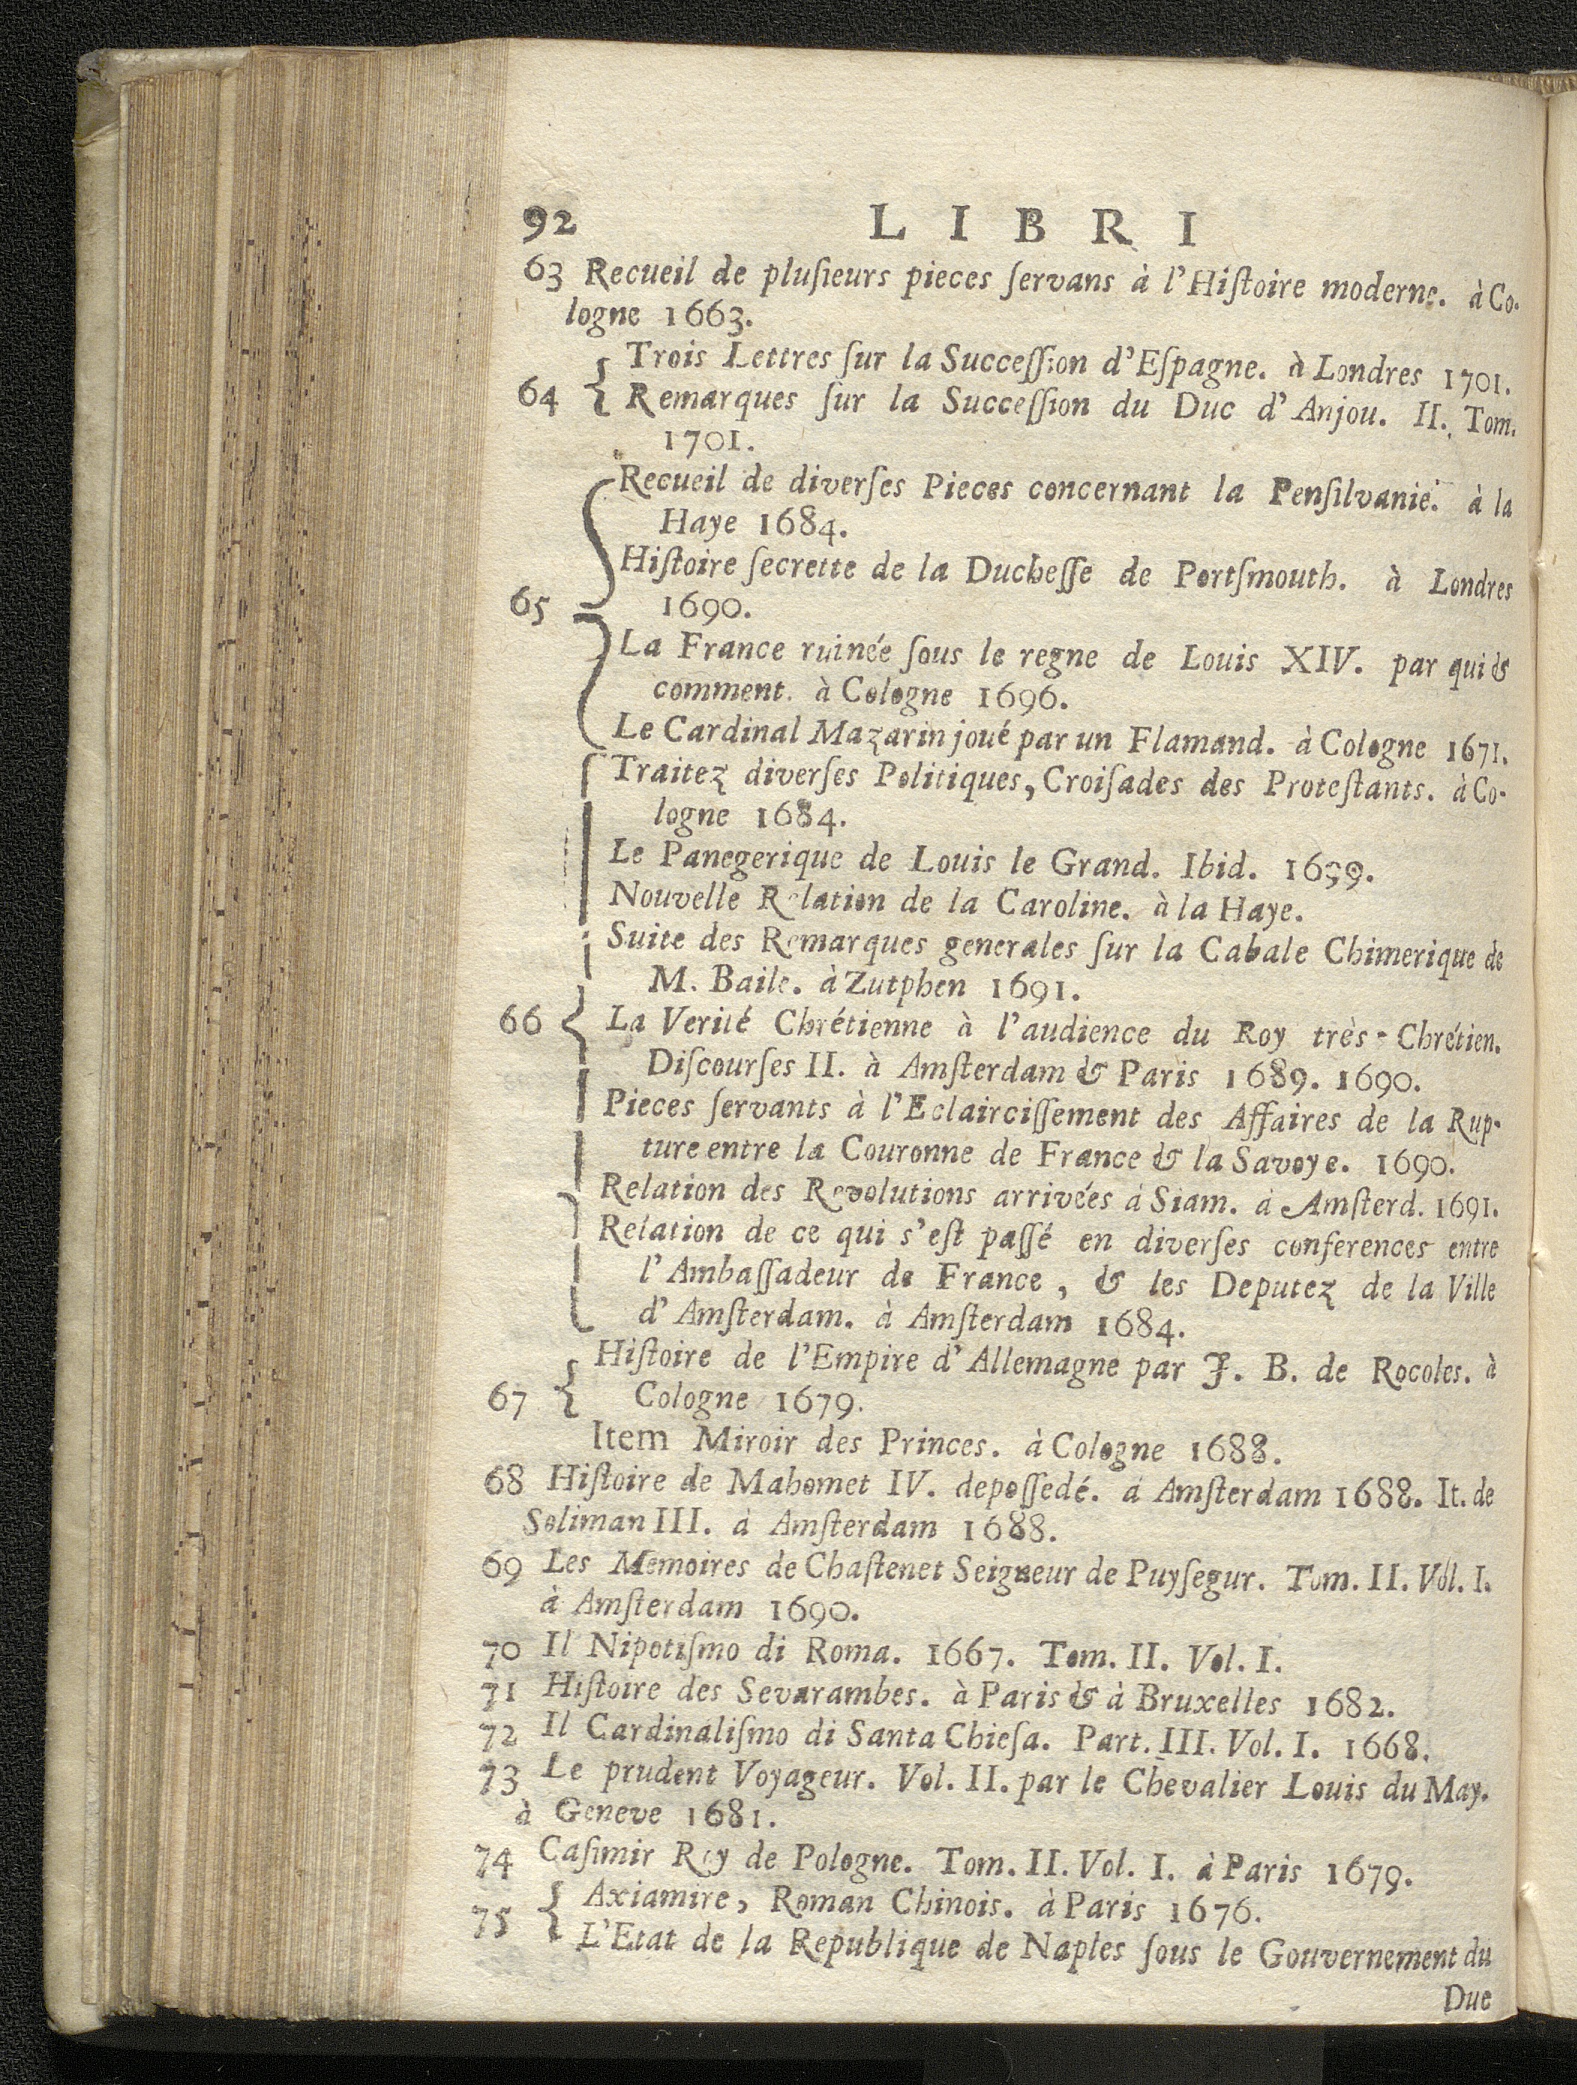 92 LIBRI
63 Recueil de pluſieurs pieces ſervans à l'Hiſtoire moderne. à Co-
logne 1663.
Trois Lettres ſur la Succeſſion d'Eſpagne. à Londres 1701.
64 { Remarques ſur la Succeſſion du Duc d'Anjou. II. Tom.
1701.
Recueil de diverſes Pieces concernant la Penſilvanie. à la
Haye 1684.
Hiſtoire ſecrette de la Ducheſſe de Portſmouth. à Londres
65 1690.
La France ruinée ſous le regne de Louis XIV. par qui &
comment. à Cologne 1696.
Le Cardinal Mazarin joué par un Flamand. à Cologne 1671.
Traitez diverſes Politiques, Croiſades des Proteſtants. à Co-
logne 1684.
Le Panegerique de Louis le Grand. Ibid. 1699.
Nouvelle Relation de la Caroline. à la Haye.
Suite des Remarques generales ſur la Cabale Chimerique de
M. Baile. à Zutphen 1691.
66 { La Verité Chrétienne à l'audience du Roy très-Chrétien.
Diſcourſes II. à Amſterdam & Paris 1689. 1690.
Pieces ſervants à l'Eclairciſſement des Affaires de la Rup-
ture entre la Couronne de France & la Savoye. 1690.
Relation des Revolutions arrivées à Siam. à Amſterd. 1691.
Relation de ce qui s'eſt paſſé en diverſes conferences entre
l'Ambaſſadeur de France, & les Deputez de la Ville
d'Amſterdam. à Amſterdam 1684.
Hiſtoire de l'Empire d'Allemagne par J. B. de Rocoles. à
67 { Cologne 1679.
Item Miroir des Princes. à Cologne 1688.
68 Hiſtoire de Mahomet IV. depoſſedé. à Amſterdam 1688. It. de
Soliman III. à Amſterdam 1688.
69 Les Memoires de Chaſtenet Seigneur de Puyſegur. Tom. II. Vol. I.
à Amſterdam 1690.
70 Il Nipotiſmo di Roma. 1667. Tom. II. Vol. I.
71 Hiſtoire des Sevarambes. à Paris & à Bruxelles 1682.
72 Il Cardinaliſmo di Santa Chieſa. Part. III. Vol. I. 1668.
73 Le prudent Voyageur. Vol. II. par le Chevalier Louis du May.
à Geneve 1681.
74 Caſimir Roy de Pologne. Tom. II. Vol. I. à Paris 1679.
75 { Axiamire, Roman Chinois. à Paris 1676.
L'Etat de la Republique de Naples ſous le Gouvernement du
Duc